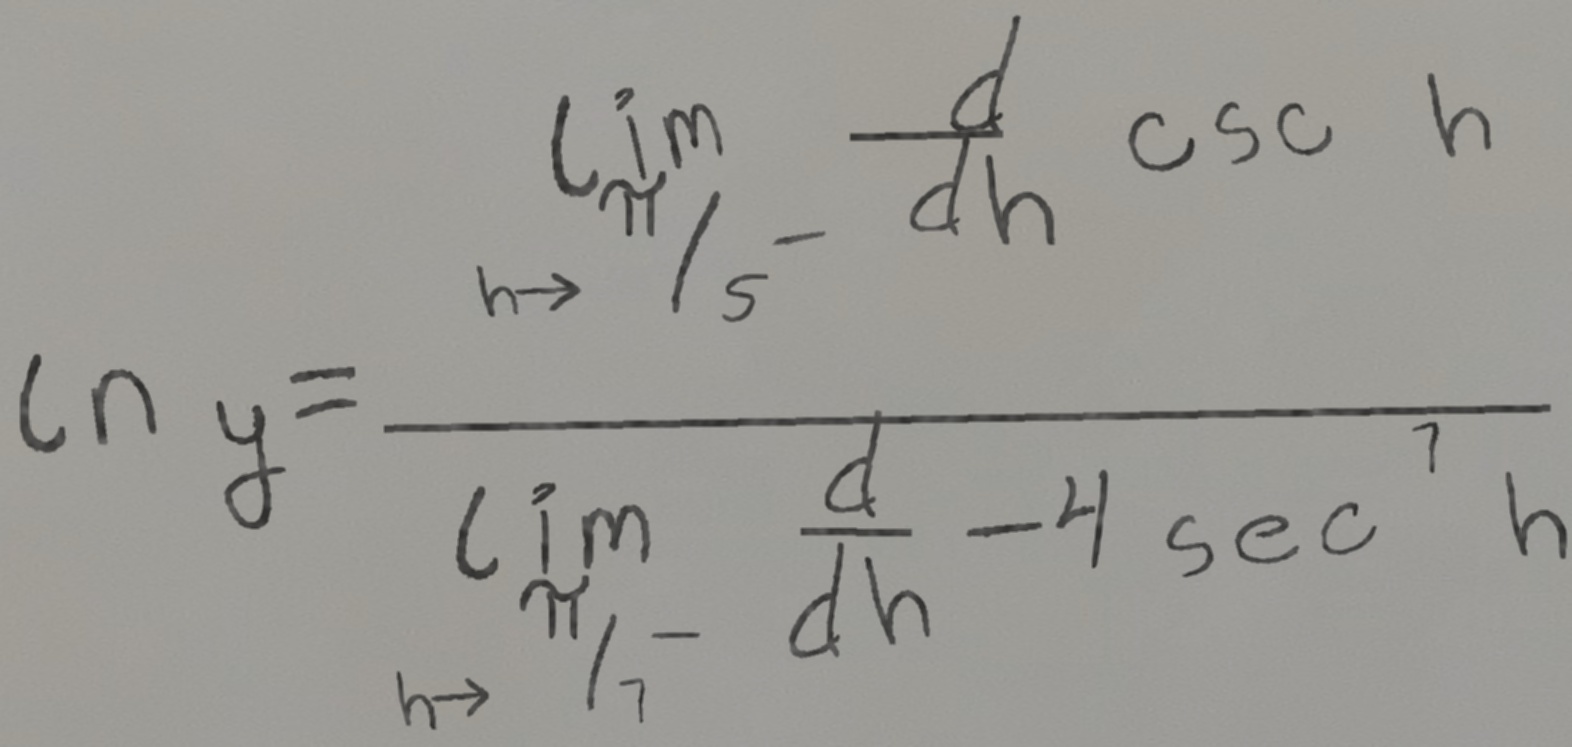 \ln y = \frac{\lim_{h \to \pi/5^-} \frac{d}{dh} \csc h}{\lim_{h \to \pi/7^-} \frac{d}{dh} -4 \sec^7 h}